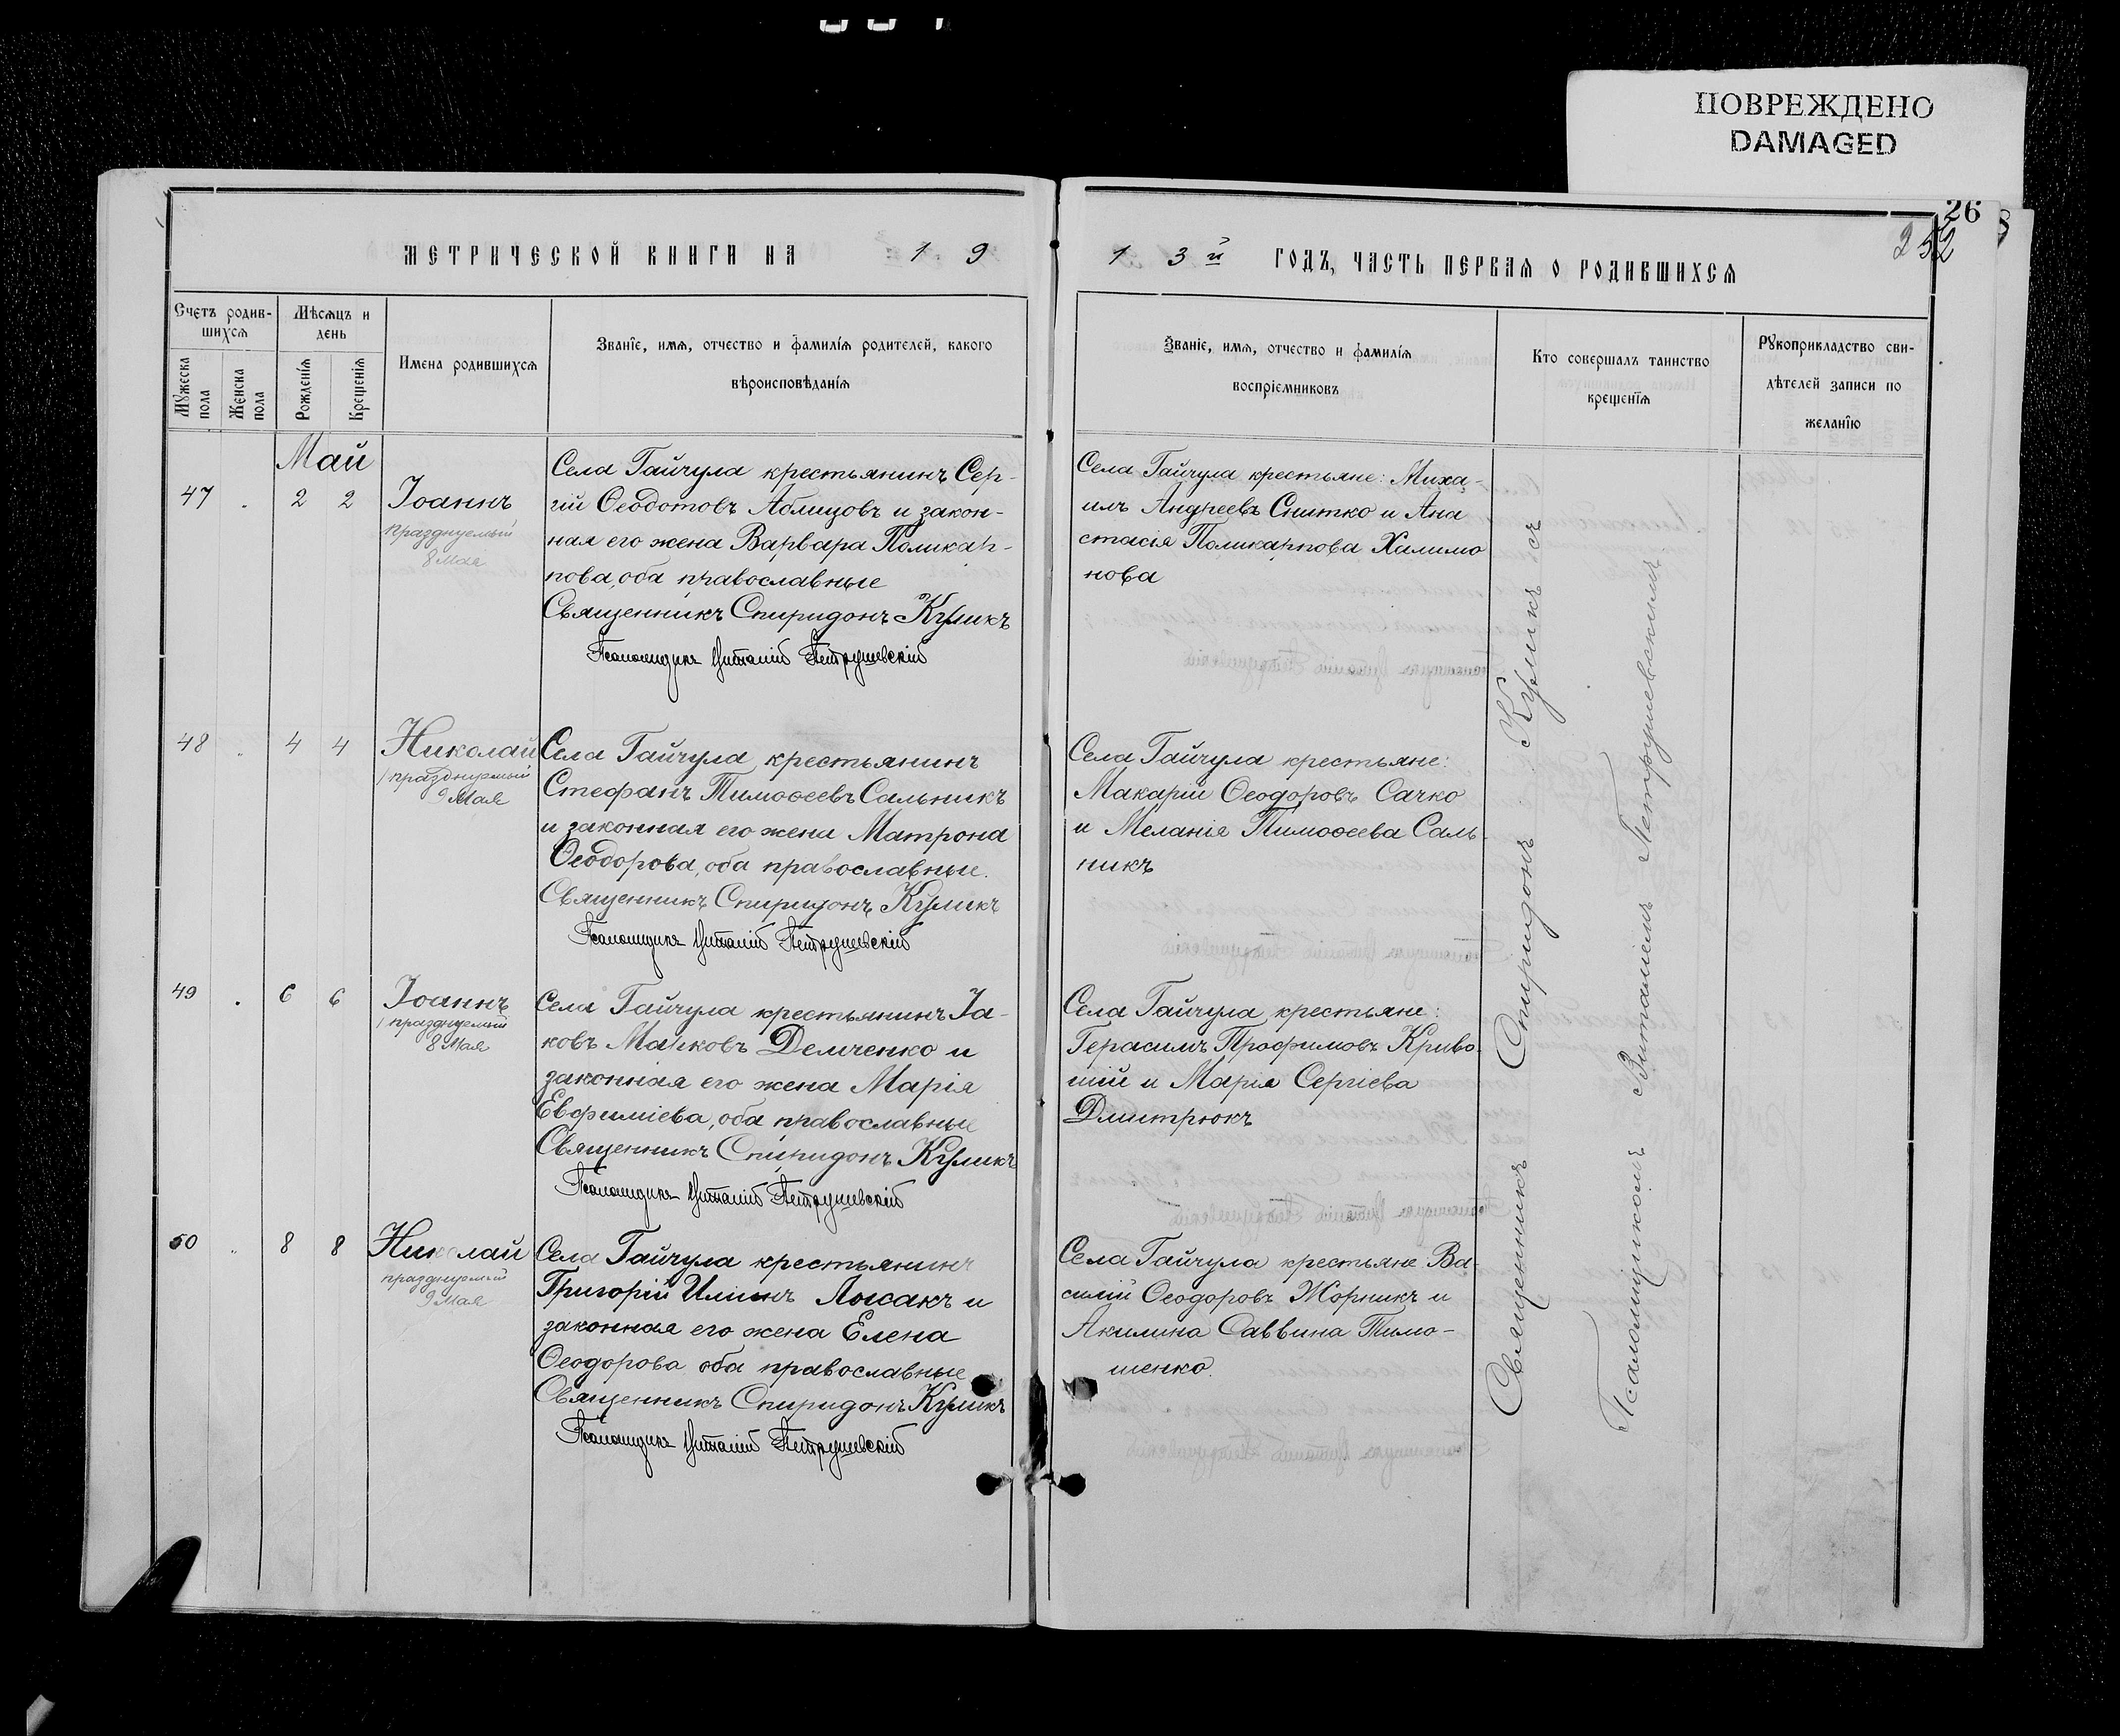 ПОВРЕЖДЕНО
DAMAGED
26
252
МЕТРИЧЕСКОЙ КНИГИ НА 1 9
1 3й ГОДЪ, ЧАСТЬ ПЕРВАЯ О РОДИВШИХСЯ
Счетъ родив-
шихся
Мѣсяцъ и
день
Мужеска
пола
Женска
пола
Рожденія
Крещенія
Имена родившихся
Званіе, имя, отчество и фамилія родителей, какого
вѣроисповѣданія
Званіе, имя, отчество и фамилія
воспріемниковъ
Кто совершалъ таинство
крещенія
Рукоприкладство сви-
дѣтелей записи по
желанію
Май
47 . 2 2 Іоаннъ
празднуемый
8 Мая
Села Гайчула крестьянинъ Сер-
гій Ѳеодотовъ Аблицовъ и закон-
ная его жена Варвара Поликар-
пова, оба православные
Священникъ Спиридонъ Куликъ
Псаломщикъ Виталій Петрушевскій
Села Гайчула крестьяне: Миха-
илъ Андреевъ Снитко и Ана
стасія Поликарпова Халимо
нова
48 . 4 4 Николай
/празднуемый
9 Мая
Села Гайчула крестьянинъ
Стефанъ Тимоѳеевъ Сальникъ
и законная его жена Матрона
Ѳеодорова, оба православные.
Священникъ Спиридонъ Куликъ
Псаломщикъ Виталій Петрушевскій
Села Гайчула крестьяне:
Макарій Ѳеодоровъ Сачко
и Меланія Тимоѳеева Саль-
никъ
49 . 6 6 Іоаннъ
/празднуемый
8 Мая
Села Гайчула крестьянинъ Іа-
ковъ Марковъ Демченко и
законная его жена Марія
Евфиміева, оба православные
Священникъ Спиридонъ Куликъ
Псаломщикъ Виталій Петрушевскій
Села Гайчула крестьяне:
Герасимъ Трофимовъ Криво-
шій и Марія Сергіева
Дмитрюкъ
50 . 8 8 Николай
празднуемый
9 Мая
Села Гайчула крестьянинъ
Григорій Иліинъ Лысакъ и
законная его жена Елена
Ѳеодорова оба православные
Священникъ Спиридонъ Куликъ
Псаломщикъ Виталій Петрушевскій
Села Гайчула крестьяне Ва-
силій Ѳеодоровъ Жорникъ и
Акилина Саввина Тимо-
шенко.
Священникъ Спиридонъ Куликъ съ
Псаломщикомъ Виталіемъ Петрушевскимъ